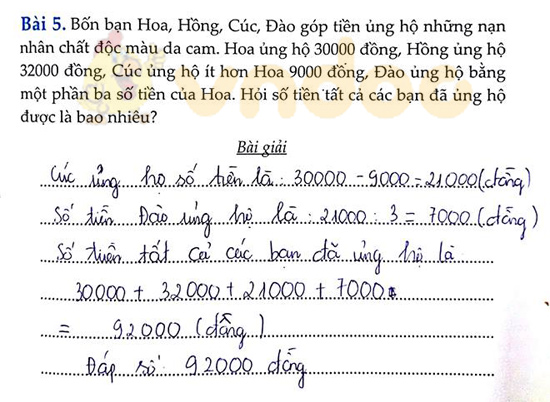 Bài 5. Bốn bạn Hoa, Hồng, Cúc, Đào góp tiền ủng hộ những nạn
nhân chất độc màu da cam. Hoa ủng hộ 30000 đồng, Hồng ủng hộ
32000 đồng, Cúc ủng hộ ít hơn Hoa 9000 đồng, Đào ủng hộ bằng
một phần ba số tiền của Hoa. Hỏi số tiền tất cả các bạn đã ủng hộ
được là bao nhiêu?
Bài giải
Cúc ủng họ số tiền là: 30000 - 9000 = 21000 (đồng)
Số tiền Đào ủng hộ là: 21000 : 3 = 7000 (đồng)
Số tiền tất cả các bạn đã ủng hộ là
30000 + 32000 + 21000 + 7000
= 92000 (đồng)
Đáp số: 92000 đồng